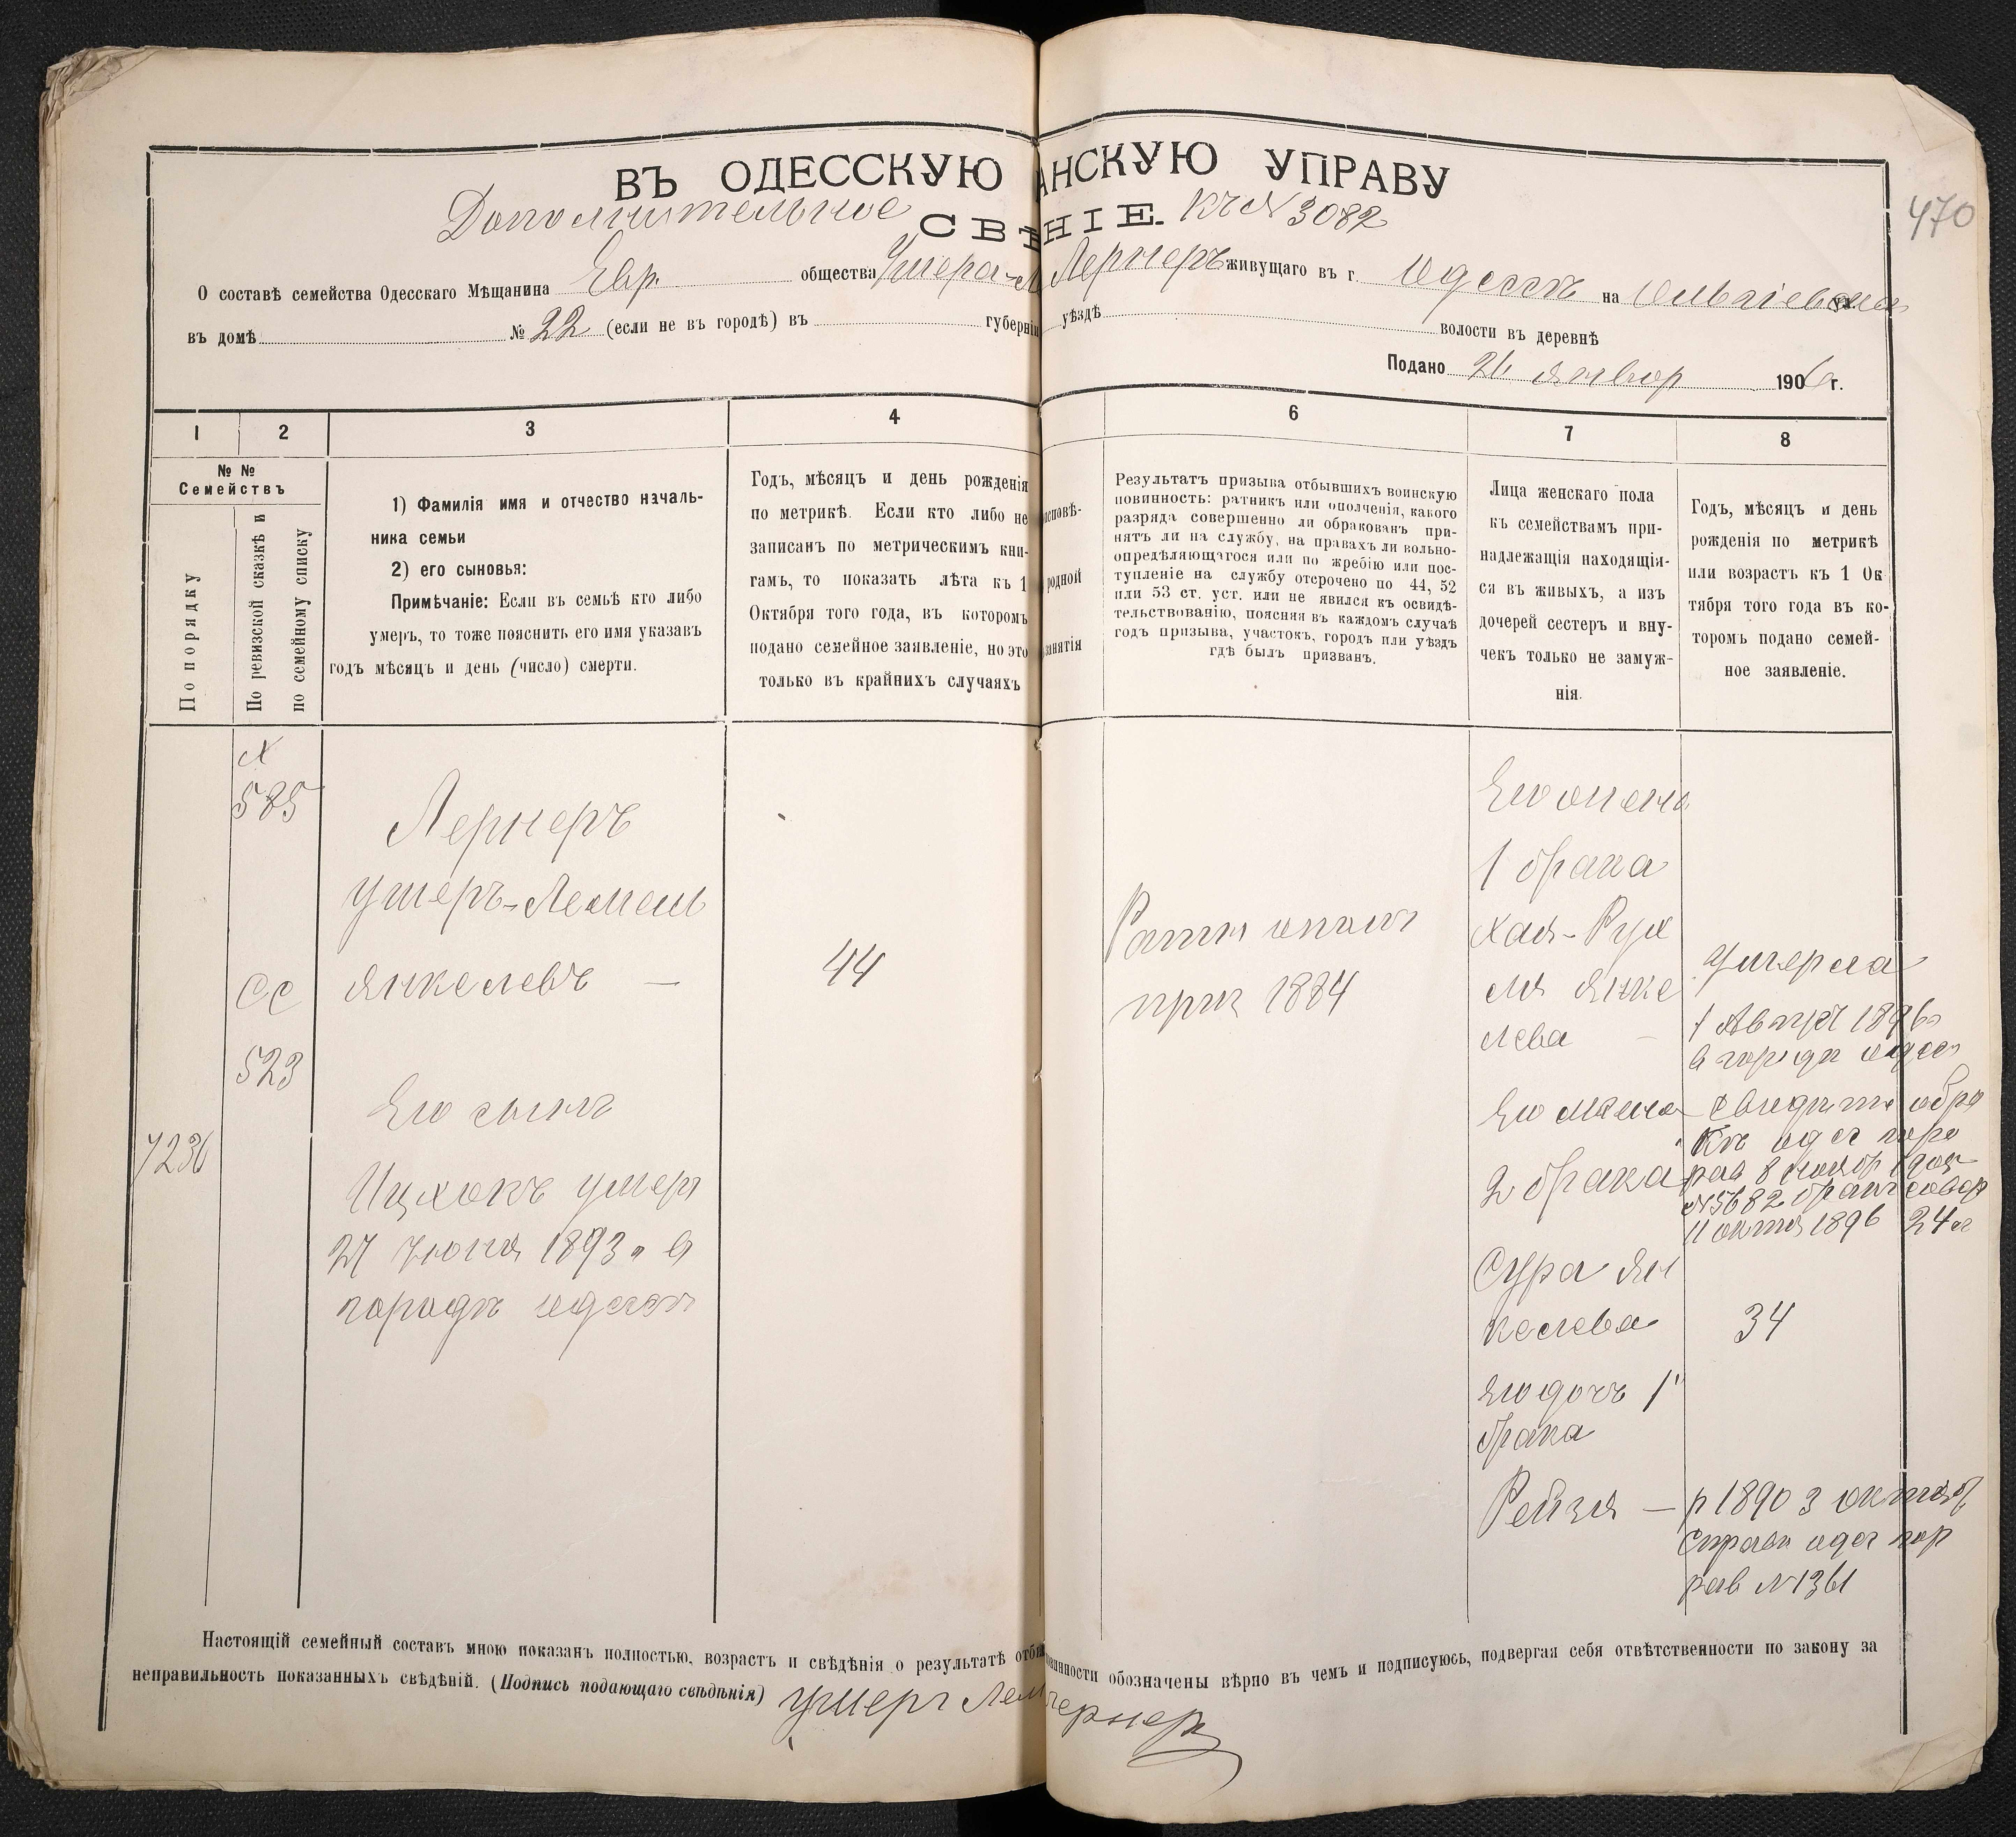 ВЪ ОДЕССКУЮ АНСКУЮ УПРАВУ
Дополнительное СВѢНІЕ. къ № 3082
470
О составѣ семейства Одесскаго Мѣщанина Евр. общества Ушера-Л Лернеръ живущаго въ г. Одессѣ на Ольгіевская ул.
въ домѣ № 22 (если не въ городѣ) въ губерніи уѣздѣ волости въ деревнѣ
Подано 26 январ 1906 г.
1 2 3 4 6 7 8
№ №
Семействъ
По порядку
По ревизской сказкѣ и
по семейному списку
1) Фамилія имя и отчество началь-
ника семьи
2) его сыновья:
Примѣчаніе: Если въ семьѣ кто либо
умеръ, то тоже пояснить его имя указавъ
годъ мѣсяцъ и день (число) смерти.
Годъ, мѣсяцъ и день рожденія
по метрикѣ. Если кто либо не
записанъ по метрическимъ кни-
гамъ, то показать лѣта къ 1
Октября того года, въ которомъ
подано семейное заявленіе, но это
только въ крайнихъ случаяхъ
исповѣ-
родной
занятія
Результатъ призыва отбывшихъ воинскую
повинность: ратникъ или ополченія, какого
разряда совершенно ли обракованъ при-
нятъ ли на службу, на правахъ ли вольно-
опредѣляющагося или по жребію или пос-
тупленіе на службу отсрочено по 44, 52
или 53 ст. уст. или не явился къ освидѣ-
тельствованію, поясняя въ каждомъ случаѣ
годъ призыва, участокъ, городъ или уѣздъ
гдѣ былъ призванъ.
Лица женскаго пола
къ семействамъ при-
надлежащія находящія-
ся въ живыхъ, а изъ
дочерей сестеръ и вну-
чекъ только не замуж-
нія.
Годъ, мѣсяцъ и день
рожденія по метрикѣ
или возрастъ къ 1 Ок
тября того года въ ко-
торомъ подано семей-
ное заявленіе.
585
СС
523
7236
Лернеръ
Ушеръ-Лемель
Янкелевъ —
Его сынъ
Ицхокъ умеръ
27 Июня 1893 г в
городѣ Одессѣ
44
Ратн ополч
приз 1884
Его жена
1 брака
Хая-Рух
ля Янке
лева —
Его жена
2 брака
Сура Ян
келева
Его дочь 1
брака
Рейзя —
Умерла
1 Август 1896
в городѣ Одес
свидѣт о бра
рав 8 ноябр
№ 5682
11 октя 1896 24 л
34
р 1890 3 октяб
справк одес гор
рав № 1361
Настоящій семейный составъ мною показанъ полностью, возрастъ и свѣдѣнія о результатѣ отбы винности обозначены вѣрно въ чемъ и подписуюсь, подвергая себя отвѣтственности по закону за
неправильность показанныхъ свѣдѣній. (Подпись подающаго свѣдѣнія) Ушеръ Лем Лернеръ